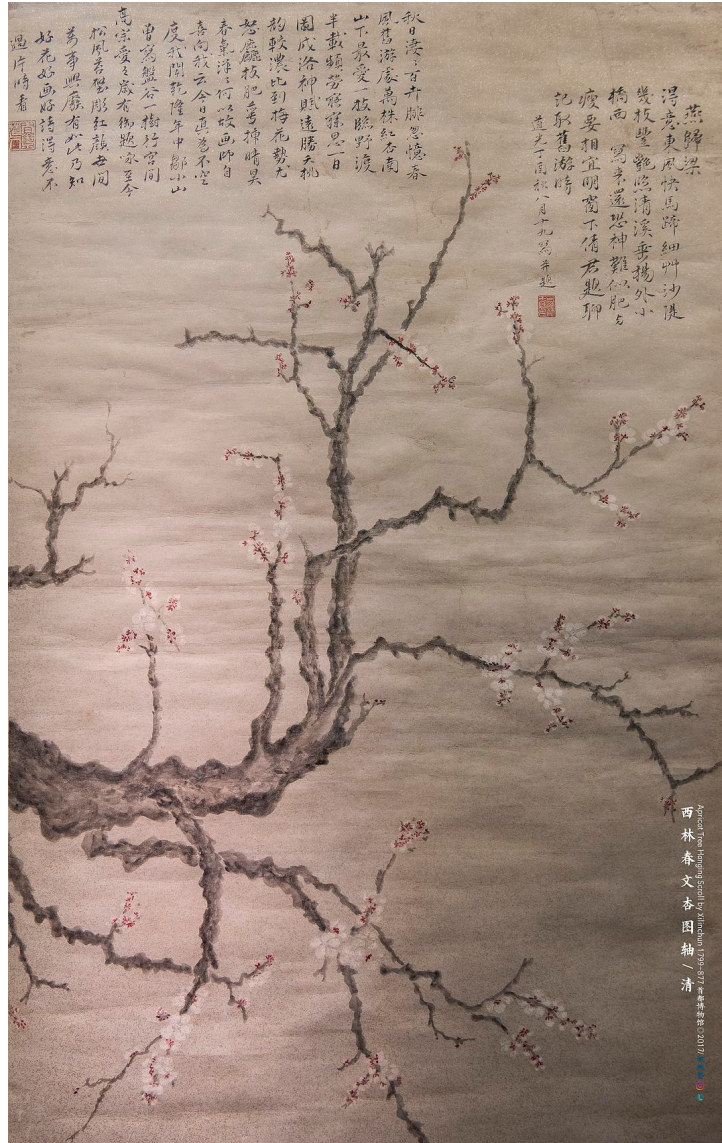 燕歸梁
得意東風快馬蹄細艸沙隄
幾枝豐艷照清溪垂楊外小
橋西 寫来還恐神難似肥与
瘦要相宜明窗下倩君題聊
記取舊游時
道光丁酉秋八月十九寫并題
秋日淒〻百卉腓忽憶春
風舊游處萬株紅杏南
山下最愛一枝臨野渡
半載頻勞寤寐思一日
圖成洛神賦遠勝夭桃
韵較濃比到梅花勢尤
怒麤枝肥萼揀晴昊
春氣洋〻何以故画師自
喜向我云今日真容不空
度我聞乾隆年中鄒小山
曾寫盤谷一樹行宮間
高宗愛之歲有御題 至今
松風 壁彫紅顔世間
萬事興廢有如此乃知
好花好画好詩得意不
過片時看
西林春文杏图轴/清
Apricot Tree Hanging Scroll by Xilinchun 1799-877 首都博物馆©2017/